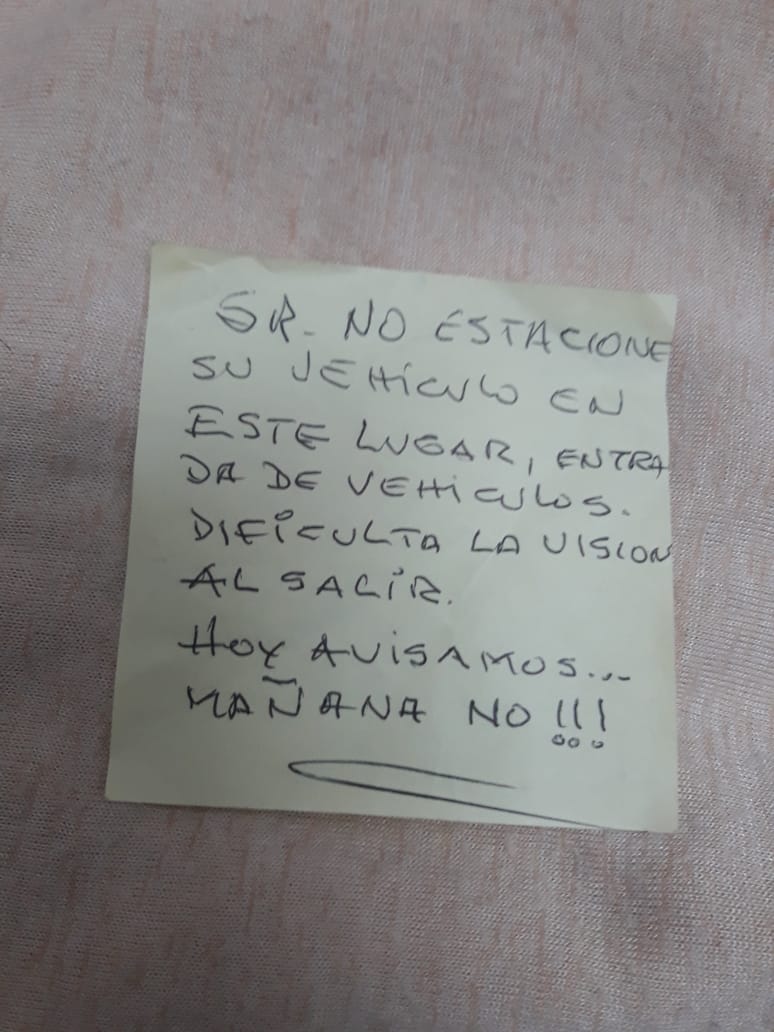 SR. NO ESTACIONE
SU VEHÍCULO EN
ESTE LUGAR, ENTRA
DA DE VEHICULOS.
DIFICULTA LA VISION
AL SALIR.
HOY AVISAMOS...
MAÑANA NO!!!